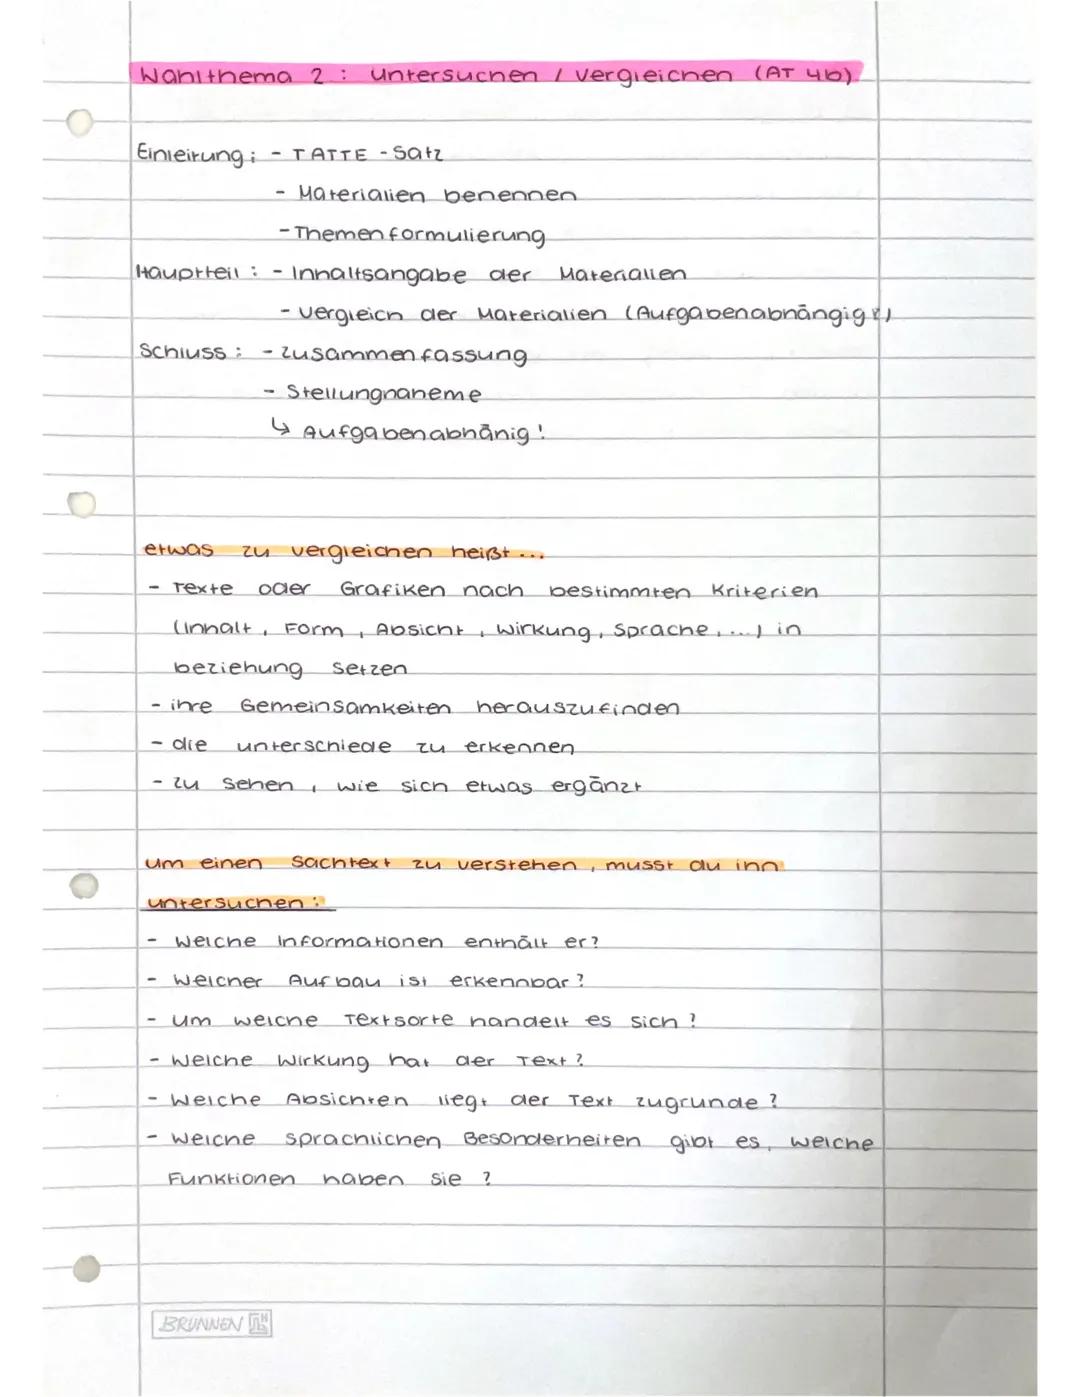 Wahlthema 2: untersuchen / vergleichen (AT 4b).
Einleitung: - TATTE-Satz
- Materialien benennen
- Themenformulierung
Hauptteil: - Inhaltsangabe der Materialien
- Vergleich der Materialien (Aufgabenabhängig!)
Schluss: - Zusammenfassung
- Stellungnaheme
↳ Aufgabenabhänig!
etwas zu vergleichen heißt...
- Texte oder Grafiken nach bestimmten Kriterien
(Inhalt, Form, Absicht, Wirkung, Sprache, ...) in
beziehung setzen
- ihre Gemeinsamkeiten herauszufinden
- die unterschiede zu erkennen
- zu sehen, wie sich etwas ergänzt
um einen Sachtext zu verstehen, musst du ihn
untersuchen:
- Welche Informationen enthält er?
- Welcher Aufbau ist erkennbar?
- Um welche Textsorte handelt es sich?
- Welche Wirkung hat der Text?
- Welche Absichten liegt der Text zugrunde?
- Welche sprachlichen Besonderheiten gibt es, welche
Funktionen haben sie?
BRUNNEN